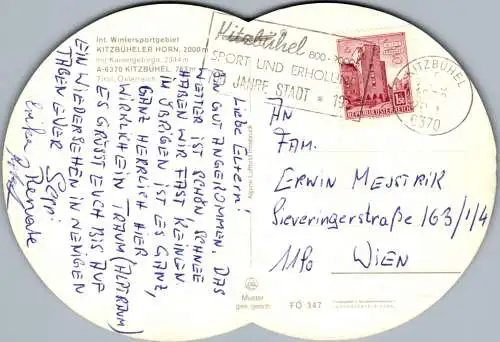 Int. Wintersportgebiet
KITZBÜHELER HORN, 2000 m
mit Kaisergebirge, 2344 m
A-6370 KITZBÜHEL, 763 m
Tirol, Österreich
Kitzbühel
800-2000
SPORT UND ERHOLUNG
JAHRE STADT
KITZBÜHEL
6370
REPUBLIK ÖSTERREICH
1.50
LIEBE ELTERN!
BIN GUT ANGEKOMMEN. DAS
WETTER IST SCHÖN, SCHNEE
HABEN WIR FAST KEINEN
IM ÜBRIGEN IST ES GANZ,
GANZ HERRLICH HIER
WIRKLICH EIN TRAUM (ALPTRAUM)
ES GRÜSST EUCH BIS AUF
EIN WIEDERSEHEN IN WENIGEN
TAGEN EUER Seppi
Erika Renate
Alpine Luftbild
Muster
ges. gesch.
FÖ 347
AN
FAM.
ERWIN MEJSTRIK
Sieveringerstraße 163/1/4
1190 WIEN